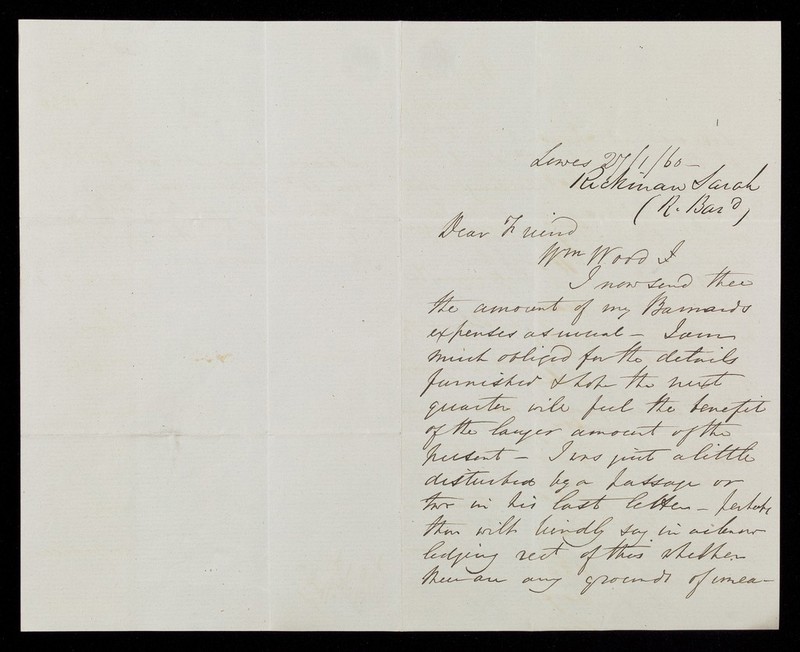 Lewes 27/1/60 -
Rickman Sarah
(R. Bar^d)
Dear Friend
Wm Wood
I now send thee
the amount of my Barnards
expenses as usual - I am
much obliged for the details
furnished & hope the next
quarter will feel the benefit
of the larger amount of the
present - I was just a little
disturbed by a passage or
two in his last letter - perhaps
thou wilt kindly say in acknow
ledging rect of this whether
there are any grounds of unea-